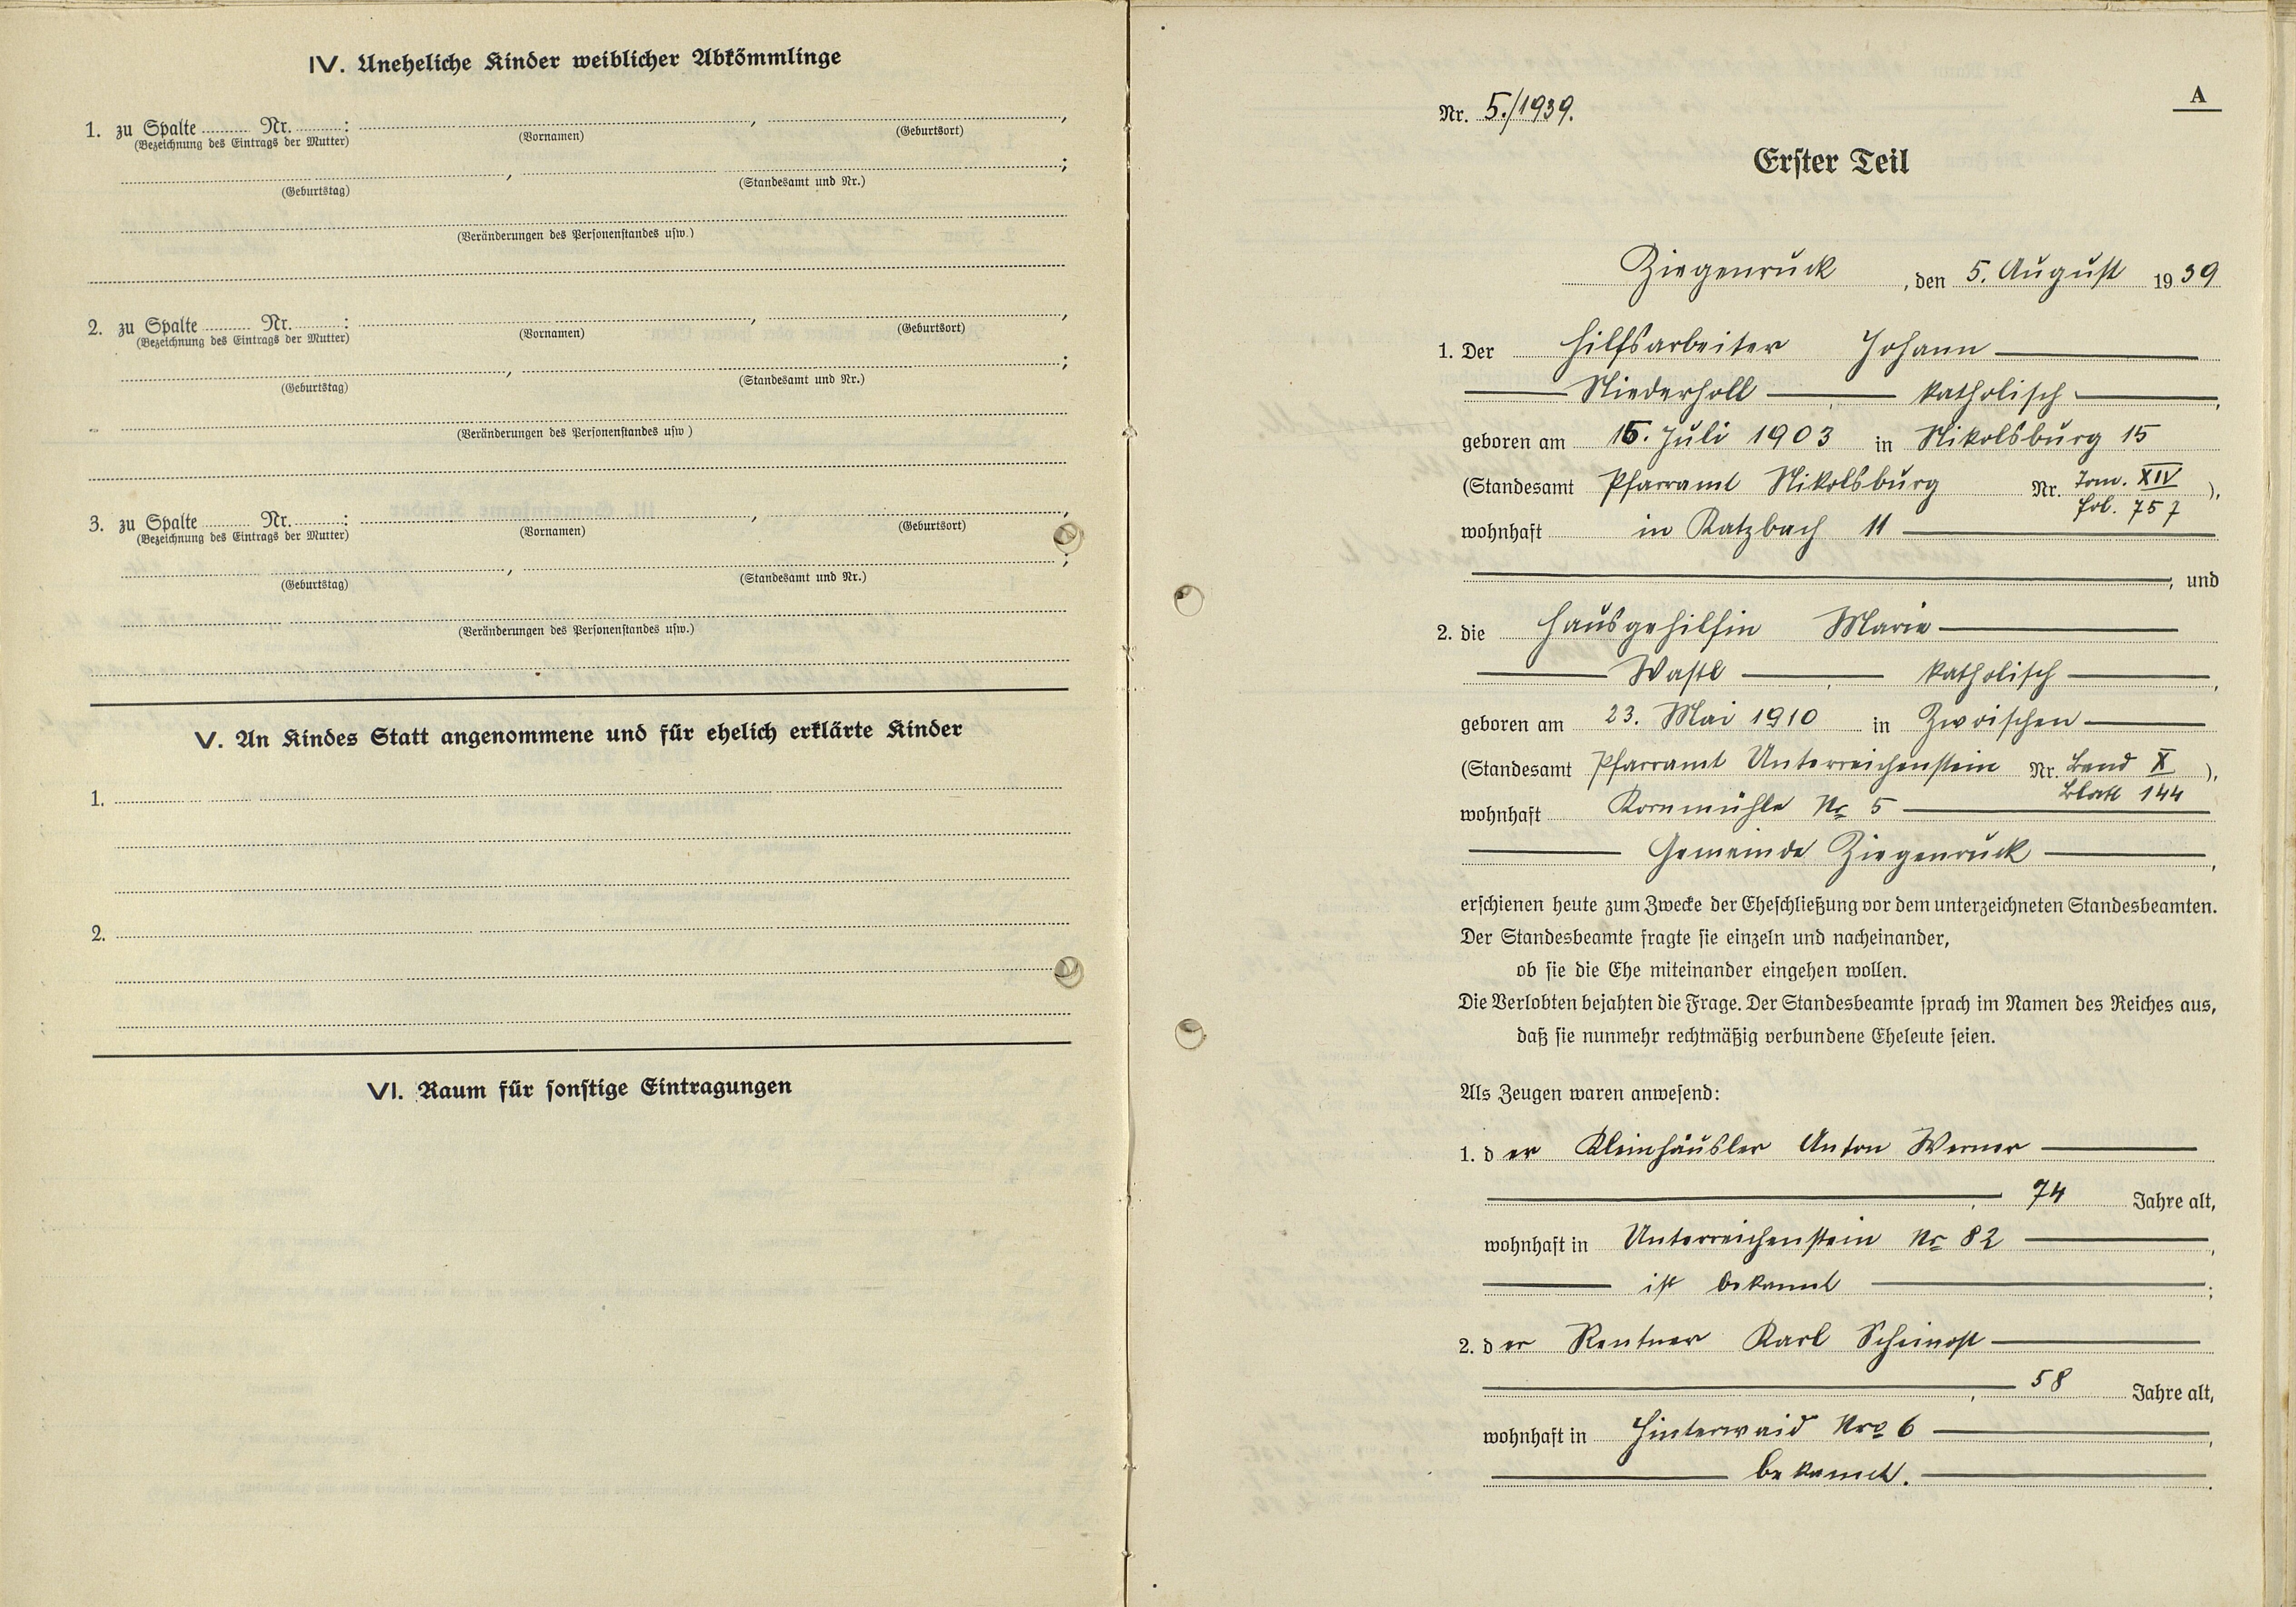 IV. Uneheliche Kinder weiblicher Abkömmlinge
1. zu Spalte ........ Nr. ........ : ........ , ........ ,
(Bezeichnung des Eintrags der Mutter) (Vornamen) (Geburtsort)
........ , ........ ;
(Geburtstag) (Standesamt und Nr.)
(Veränderungen des Personenstandes usw.)
2. zu Spalte ........ Nr. ........ : ........ , ........ ,
(Bezeichnung des Eintrags der Mutter) (Vornamen) (Geburtsort)
........ , ........ ;
(Geburtstag) (Standesamt und Nr.)
(Veränderungen des Personenstandes usw)
3. zu Spalte ........ Nr. ........ : ........ , ........ ,
(Bezeichnung des Eintrags der Mutter) (Vornamen) (Geburtsort)
........ , ........ ;
(Geburtstag) (Standesamt und Nr.)
(Veränderungen des Personenstandes usw.)
V. An Kindes Statt angenommene und für ehelich erklärte Kinder
1.
2.
VI. Raum für sonstige Eintragungen
A
Nr. 5./1939.
Erster Teil
Ziegenruck, den 5. August 1939
1. Der Hilfsarbeiter Johann
Niederholl, katholisch,
geboren am 15. Juli 1903 in Nikolsburg 15
(Standesamt Pfarramt Nikolsburg Nr. Tom. XIV ),
fol. 757
wohnhaft in Katzbach 11
, und
2. die Hausgehilfin Marie
Wastl, katholisch,
geboren am 23. Mai 1910 in Zwoischen
(Standesamt Pfarramt Unterreichenstein Nr. Band X ),
Blatt 144
wohnhaft Kornmühle Nr 5
Gemeinde Ziegenruck,
erschienen heute zum Zwecke der Eheschließung vor dem unterzeichneten Standesbeamten.
Der Standesbeamte fragte sie einzeln und nacheinander,
ob sie die Ehe miteinander eingehen wollen.
Die Verlobten bejahten die Frage. Der Standesbeamte sprach im Namen des Reiches aus,
daß sie nunmehr rechtmäßig verbundene Eheleute seien.
Als Zeugen waren anwesend:
1. der Kleinhäusler Anton Werner
, 74 Jahre alt,
wohnhaft in Unterreichenstein Nr 82,
ist bekannt ;
2. der Rentner Karl Scheinost
, 58 Jahre alt,
wohnhaft in Hinterwaid Nro 6,
bekannt.